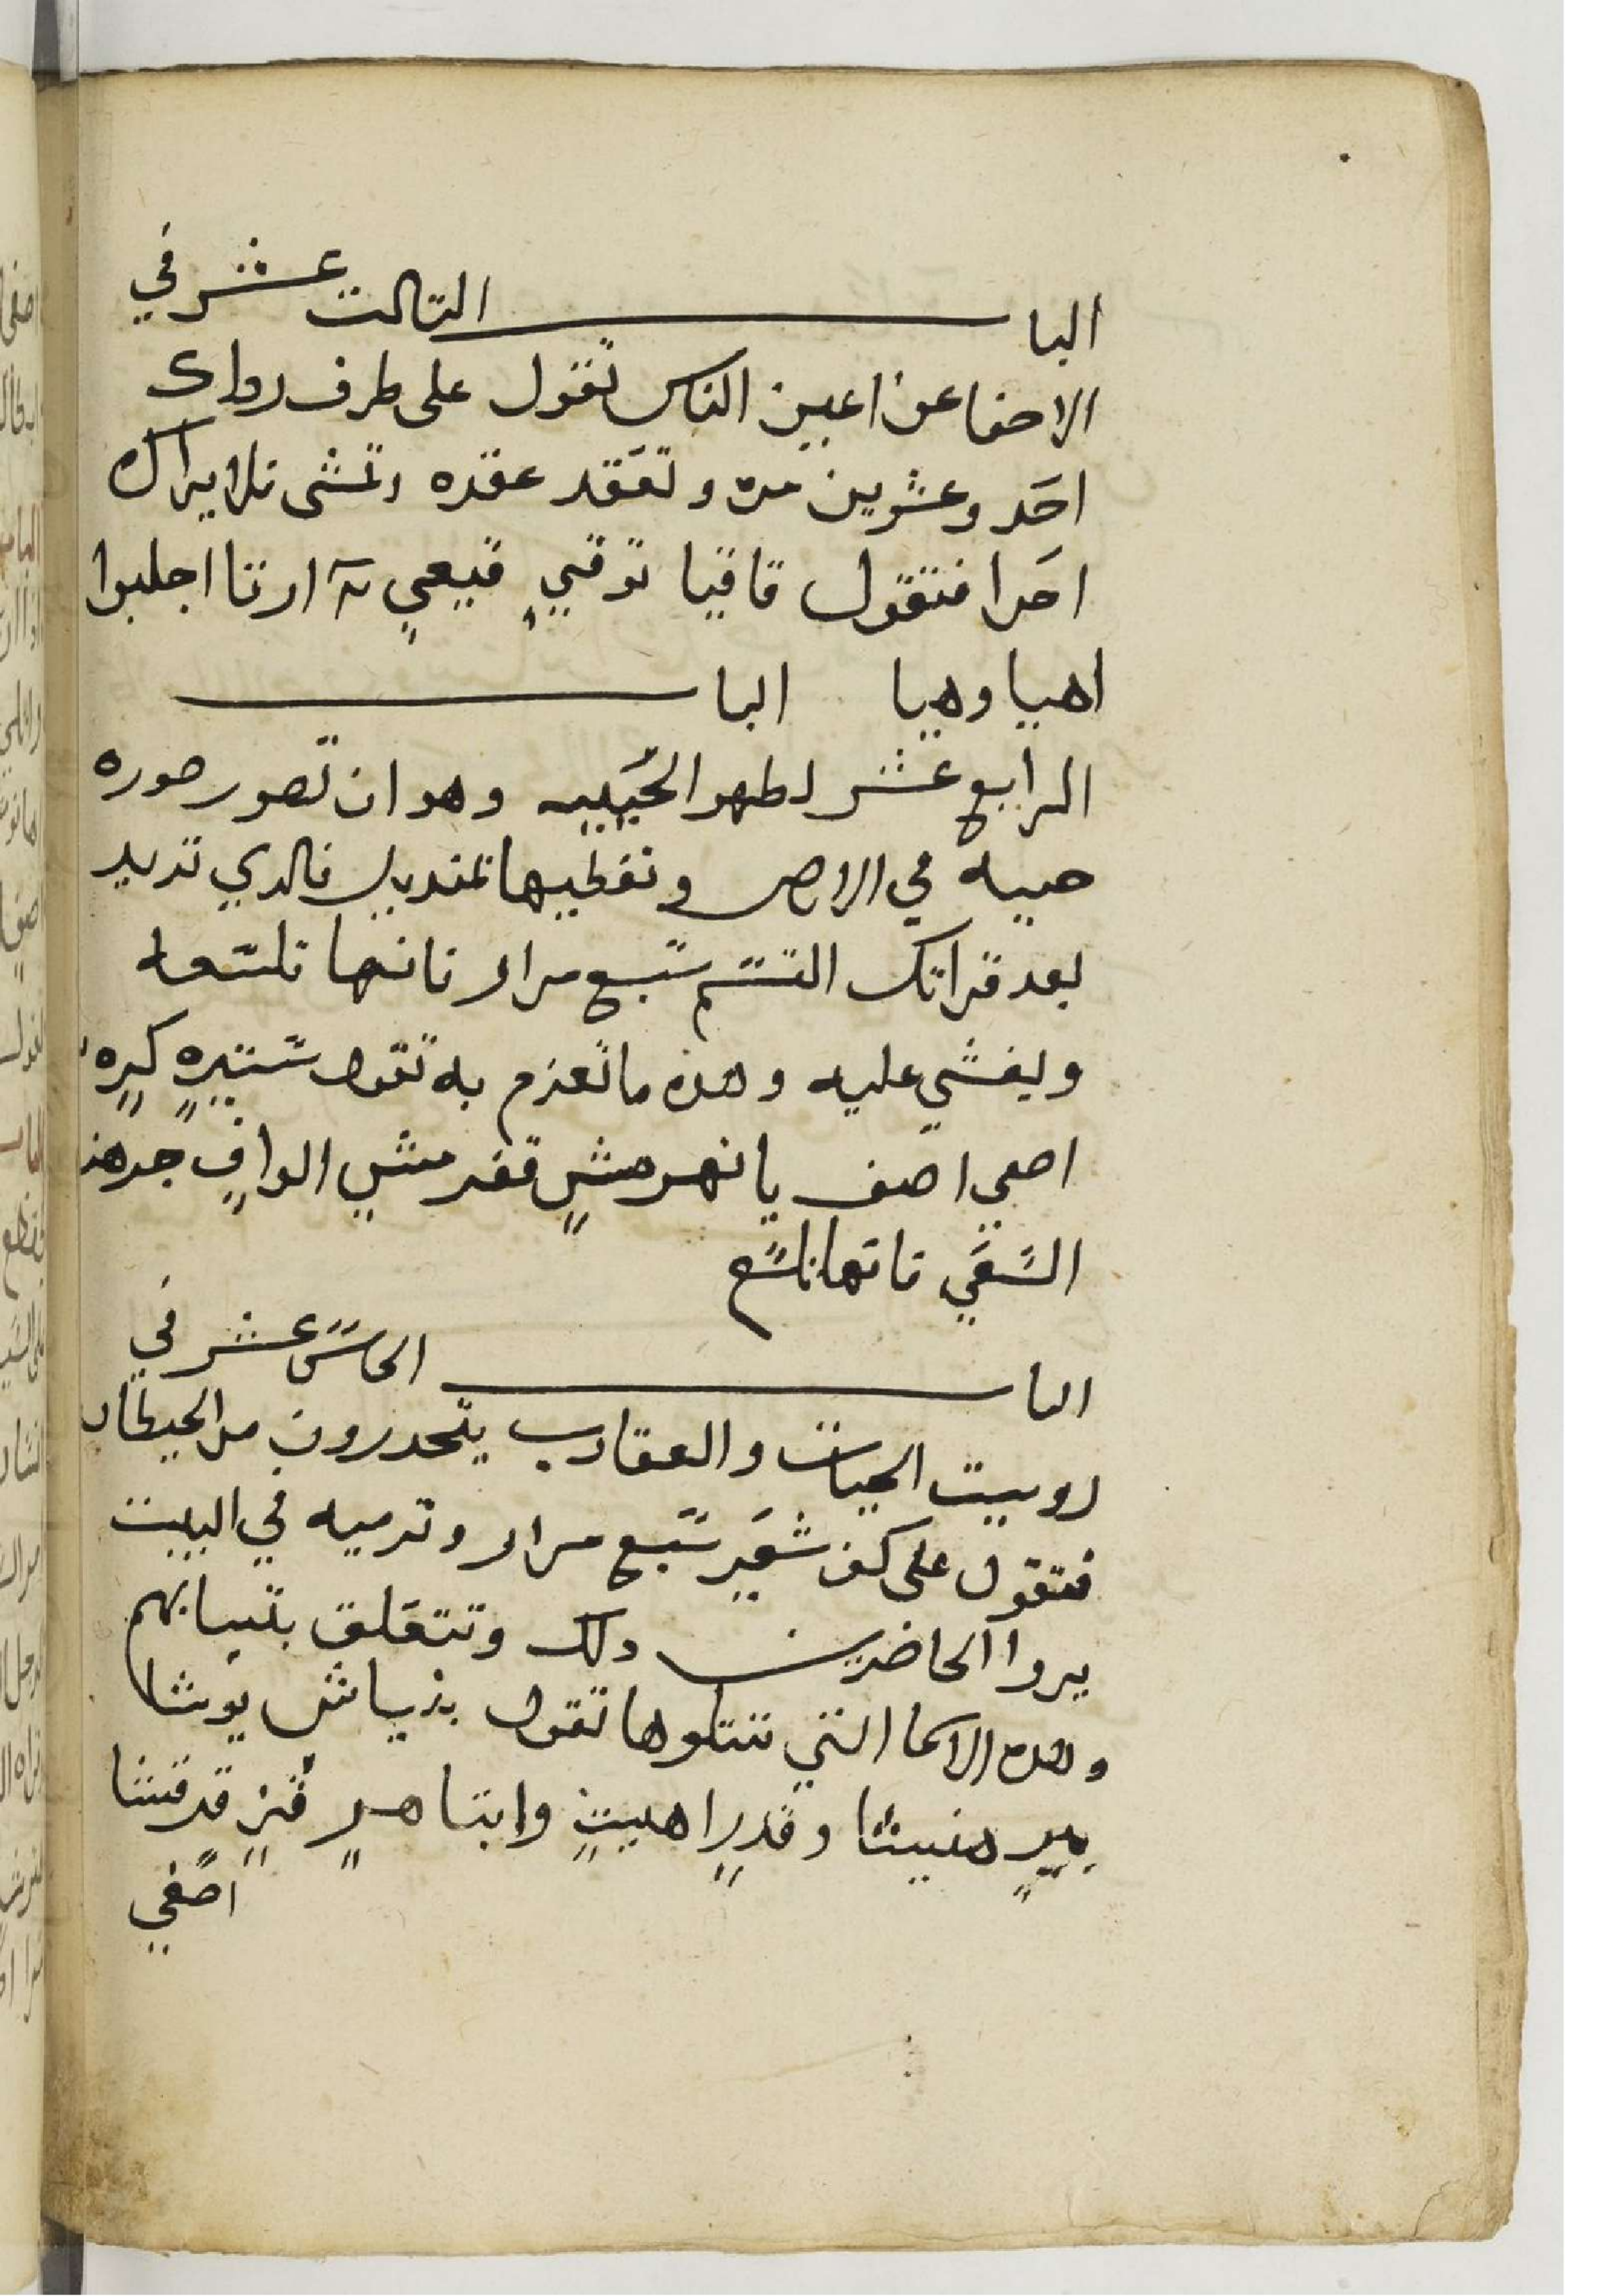 البا ب التالت عشر في
الاخفا عن اعين الناس تقول على طرف رداك
احد وعشرين مره وتعقد عقده وتمشى فلا يراك
احدا فتقول قاقيا توقيٍ قيعيٍ ارتا اجلبوا
اهيا وهيا البا ب
الرابع عشر لطهر الحييه وهو ان تصور صوره
حييه في الارض وتغطيها بمنديل فالدي تريد
بعد قراتك القسم سبع مرار فانها تلسعه
ويغشي عليه وهده ما تعزم به تقول شتيرهٍ كيرهٍ
اصعى اصف يا نهرمشٍ قفرمشيٍ الوافٍ
السَعَي فانها تلسع
البا ب الخامس عشر في
روييت الحيات والعقارب يتحدرون من الحيطان
فتقول على كف شعير سبع مرار وترميه في البيت
يروا الحاضرين دلك وتتعلق بتيابهم
وهده الاسما التي تتلوها تقول بذياش يوشا
هنيشا وقديرٍ اهييتٍ وابتا هرٍ قيزٍ قدقشا
اصغي